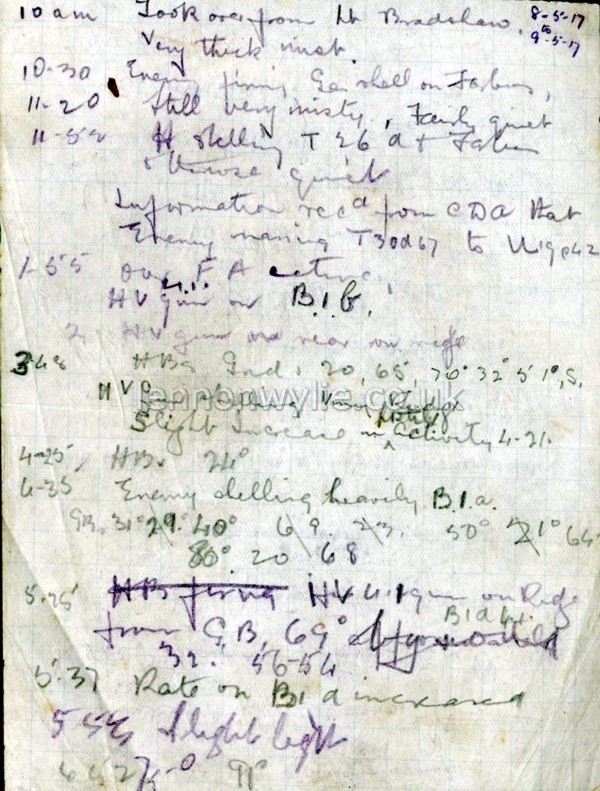 10 am Took over from Lt Bradshaw. 8-5-17
9th-5-17
Very thick mist.
10-30 Enemy firing Gas shell on Farbus,
11-20 Still very misty, Fairly quiet
H shelling T 26 d +
otherwise quiet
Information recd from CDA that
Enemy T30d67 to
1-55 our F A active.
HV gun on B.1.b.
HV gun on rear on ridge
3-48 HBs Gnd. 20, 65, 70° 32° 51°, S.
HV Gun Ridge
lennonwylie.co.uk
Slight Increase in Hostile Activity 4-21.
4-25, HB. 24°
4-35 Enemy shelling heavily B.1.a.
GB. 31° 29. 40° 69. 23. 50° 21° 64
80° 20 68
5.25 HB firing HV 4.1 gun on Ridge
from GB, 69° B1d 4.1.
32. 56-54
5.37 Rate on B1 d increased
5-55 Slight
91°